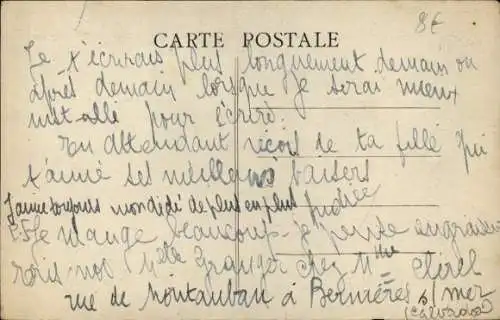 8€
CARTE POSTALE
Je t'écrirais plus longuement demain ou
après demain lorsque je serai mieux
installé pour écrire.
En attendant reçois de ta fille qui
t'aime ses meilleurs baisers
J'aime toujours mon dédé de plus en plus
P.S. Je mange beaucoup je pense engraisser
vous moi Mlle Granger chez Mme Clérel
rue de Montauban à Bernières s/ mer
(Calvados)